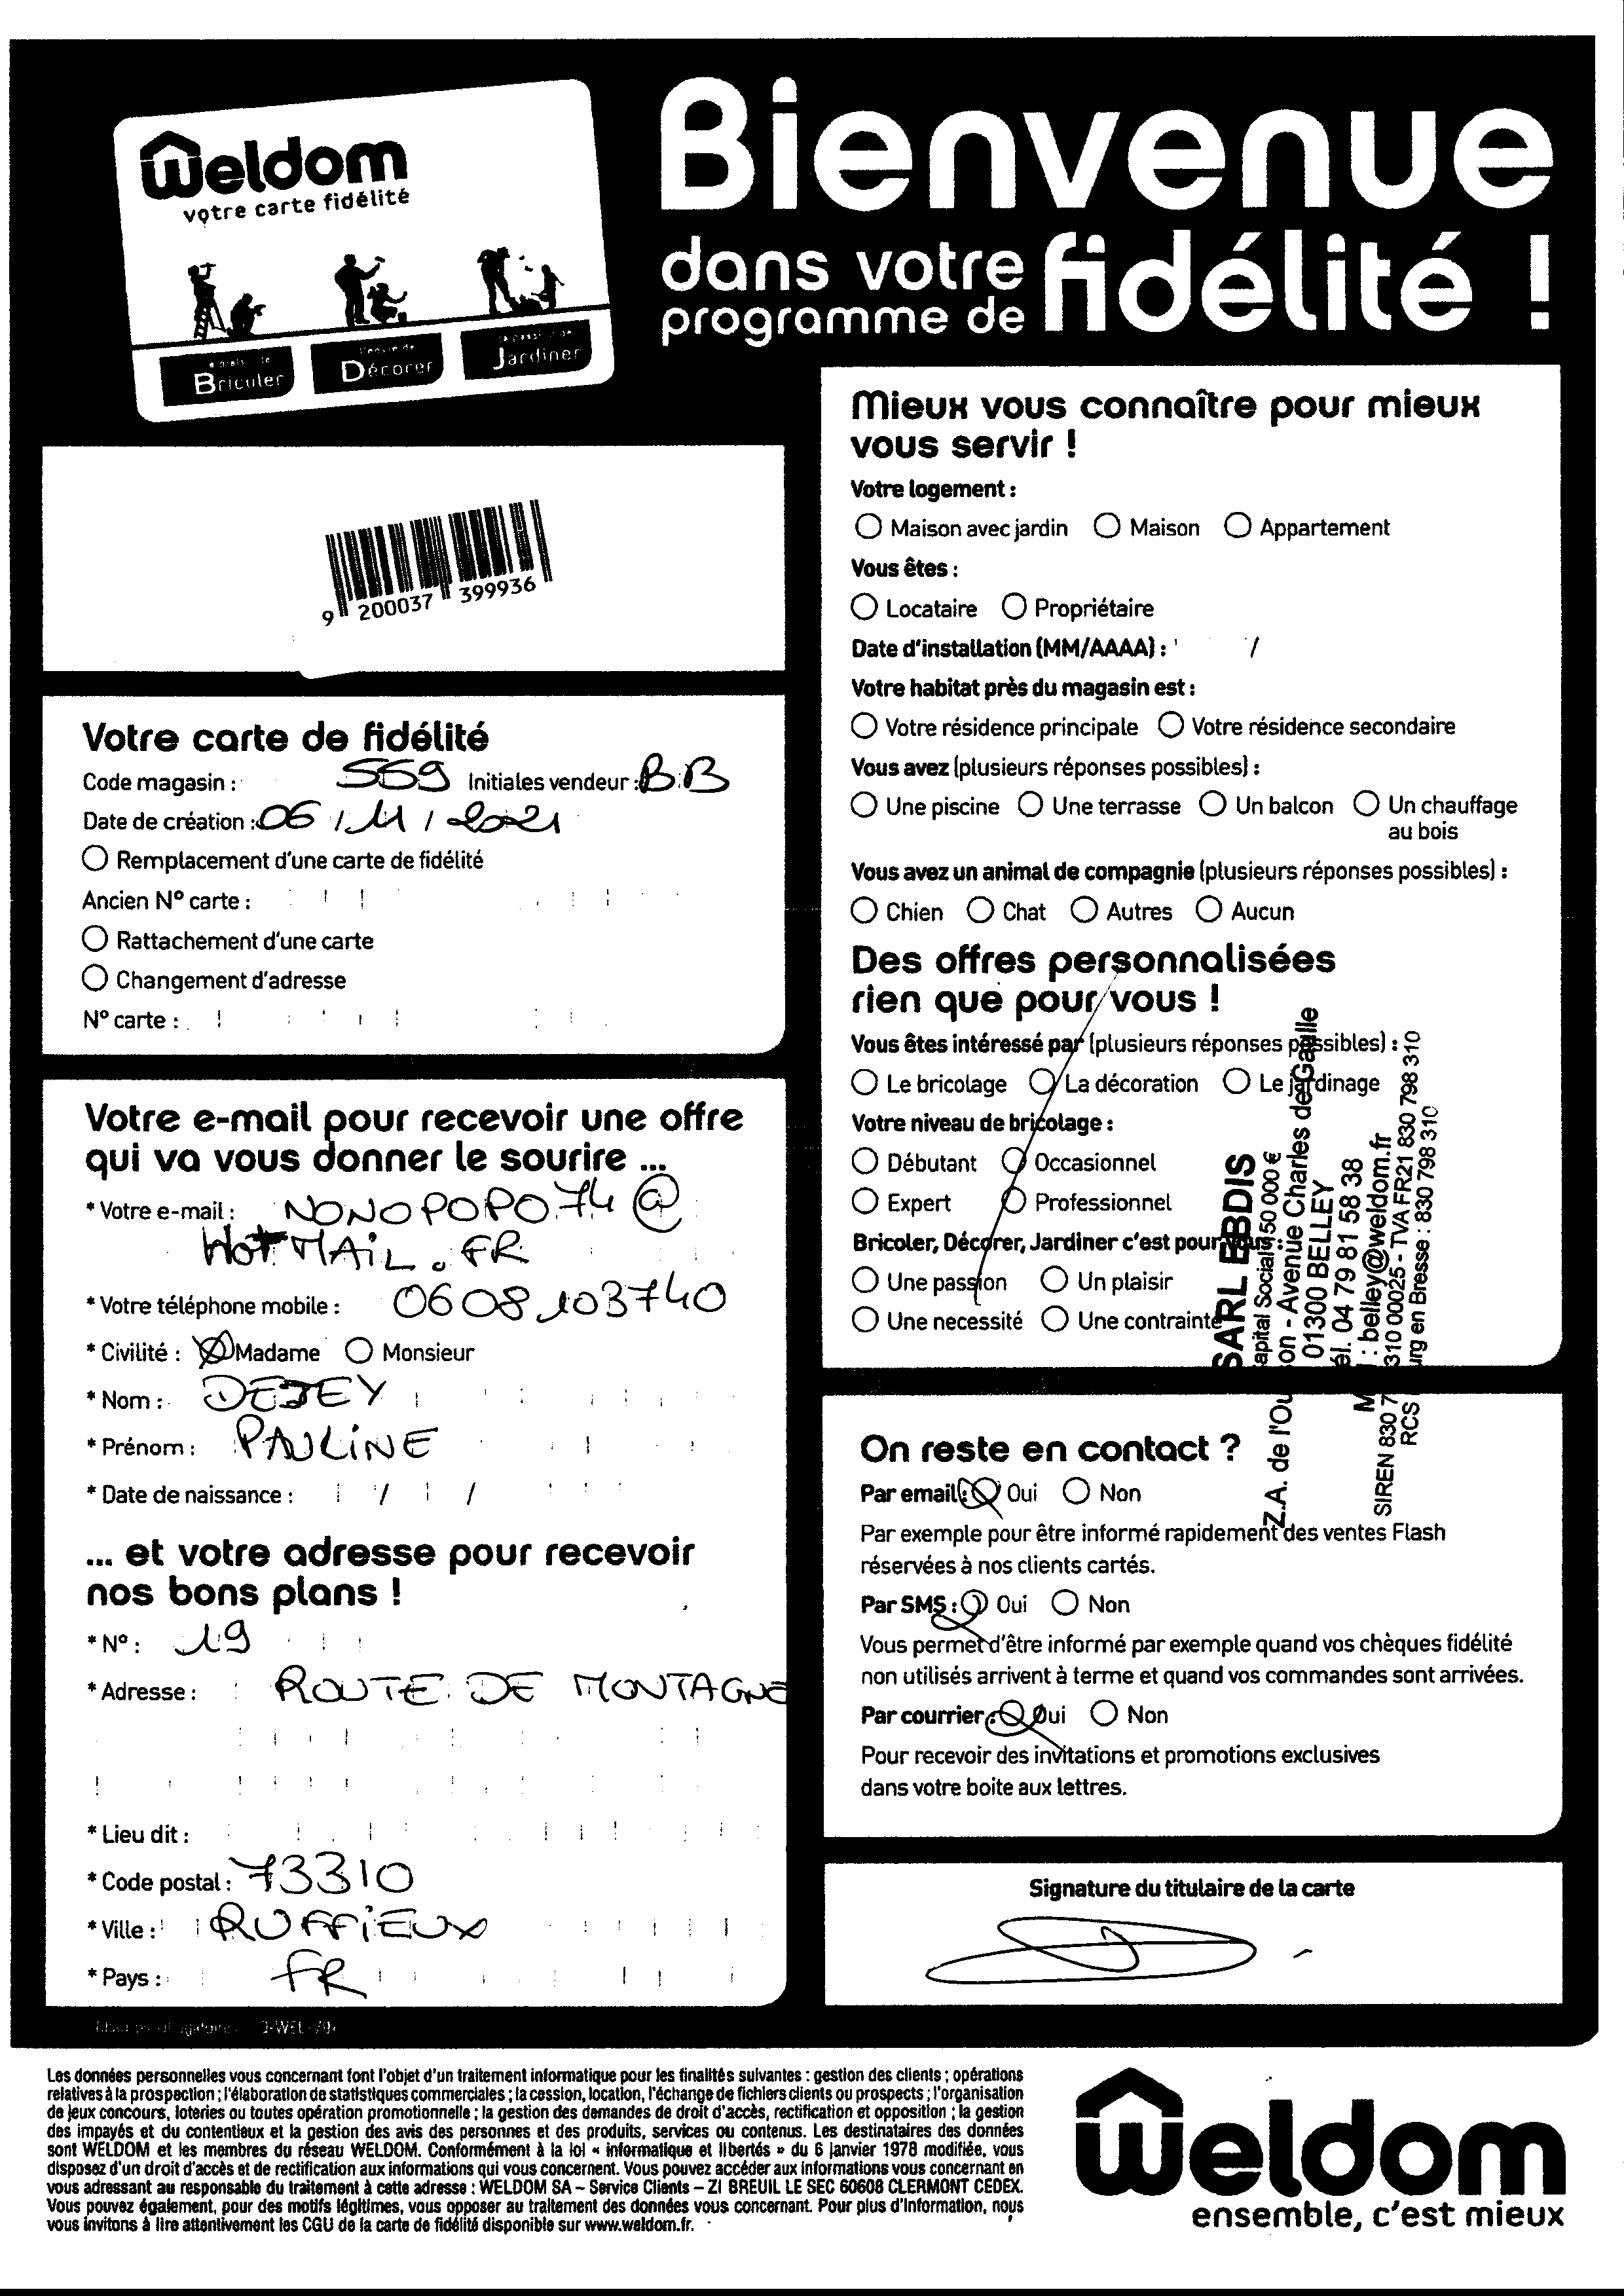 Weldom
votre carte fidélité
Bricoler
Décorer
Jardiner
Bienvenue
dans votre
programme de
fidélité !
9 200037 399936
Votre carte de fidélité
Code magasin : 569 Initiales vendeur : B.B
Date de création : 06 / 11 / 2021
Remplacement d'une carte de fidélité
Ancien N° carte :
Rattachement d'une carte
Changement d'adresse
N° carte :
Votre e-mail pour recevoir une offre
qui va vous donner le sourire ...
* Votre e-mail : NONOPOPO74@
HOTMAIL.FR
* Votre téléphone mobile : 0608103740
* Civilité : Madame Monsieur
* Nom : DEJEY
* Prénom : PAULINE
* Date de naissance : / /
... et votre adresse pour recevoir
nos bons plans !
* N° : 19
* Adresse : ROUTE DE MONTAGNE
* Lieu dit :
* Code postal : 73310
* Ville : RUFFIEUX
* Pays : FR
Mieux vous connaître pour mieux
vous servir !
Votre logement :
Maison avec jardin Maison Appartement
Vous êtes :
Locataire Propriétaire
Date d'installation (MM/AAAA) : /
Votre habitat près du magasin est :
Votre résidence principale Votre résidence secondaire
Vous avez (plusieurs réponses possibles) :
Une piscine Une terrasse Un balcon Un chauffage
au bois
Vous avez un animal de compagnie (plusieurs réponses possibles) :
Chien Chat Autres Aucun
Des offres personnalisées
rien que pour vous !
Vous êtes intéressé par (plusieurs réponses possibles) :
Le bricolage La décoration Le jardinage
Votre niveau de bricolage :
Débutant Occasionnel
Expert Professionnel
Bricoler, Décorer, Jardiner c'est pour vous :
Une passion Un plaisir
Une necessité Une contrainte
SARL EBDIS
Capital Social 50 000 €
Z.A. de l'Ou son - Avenue Charles de Gaulle
01300 BELLEY
Tél. 04 79 81 58 38
: belley@weldom.fr
SIREN 830 7 310 00025 - TVA FR21 830 798 310
RCS urg en Bresse : 830 798 310
On reste en contact ?
Par email : Oui Non
Par exemple pour être informé rapidement des ventes Flash
réservées à nos clients cartés.
Par SMS : Oui Non
Vous permet d'être informé par exemple quand vos chèques fidélité
non utilisés arrivent à terme et quand vos commandes sont arrivées.
Par courrier : Oui Non
Pour recevoir des invitations et promotions exclusives
dans votre boite aux lettres.
Signature du titulaire de la carte
Les données personnelles vous concernant font l'objet d'un traitement informatique pour les finalités suivantes : gestion des clients ; opérations
relatives à la prospection ; l'élaboration de statistiques commerciales ; la cession, location, l'échange de fichiers clients ou prospects ; l'organisation
de jeux concours, loteries ou toutes opération promotionnelle ; la gestion des demandes de droit d'accès, rectification et opposition ; la gestion
des impayés et du contentieux et la gestion des avis des personnes et des produits, services ou contenus. Les destinataires des données
sont WELDOM et les membres du réseau WELDOM. Conformément à la loi « informatique et libertés » du 6 janvier 1978 modifiée, vous
disposez d'un droit d'accès et de rectification aux informations qui vous concernent. Vous pouvez accéder aux informations vous concernant en
vous adressant au responsable du traitement à cette adresse : WELDOM SA – Service Clients – ZI BREUIL LE SEC 60608 CLERMONT CEDEX.
Vous pouvez également, pour des motifs légitimes, vous opposer au traitement des données vous concernant. Pour plus d'information, nous
vous invitons à lire attentivement les CGU de la carte de fidélité disponible sur www.weldom.fr.
Weldom
ensemble, c'est mieux